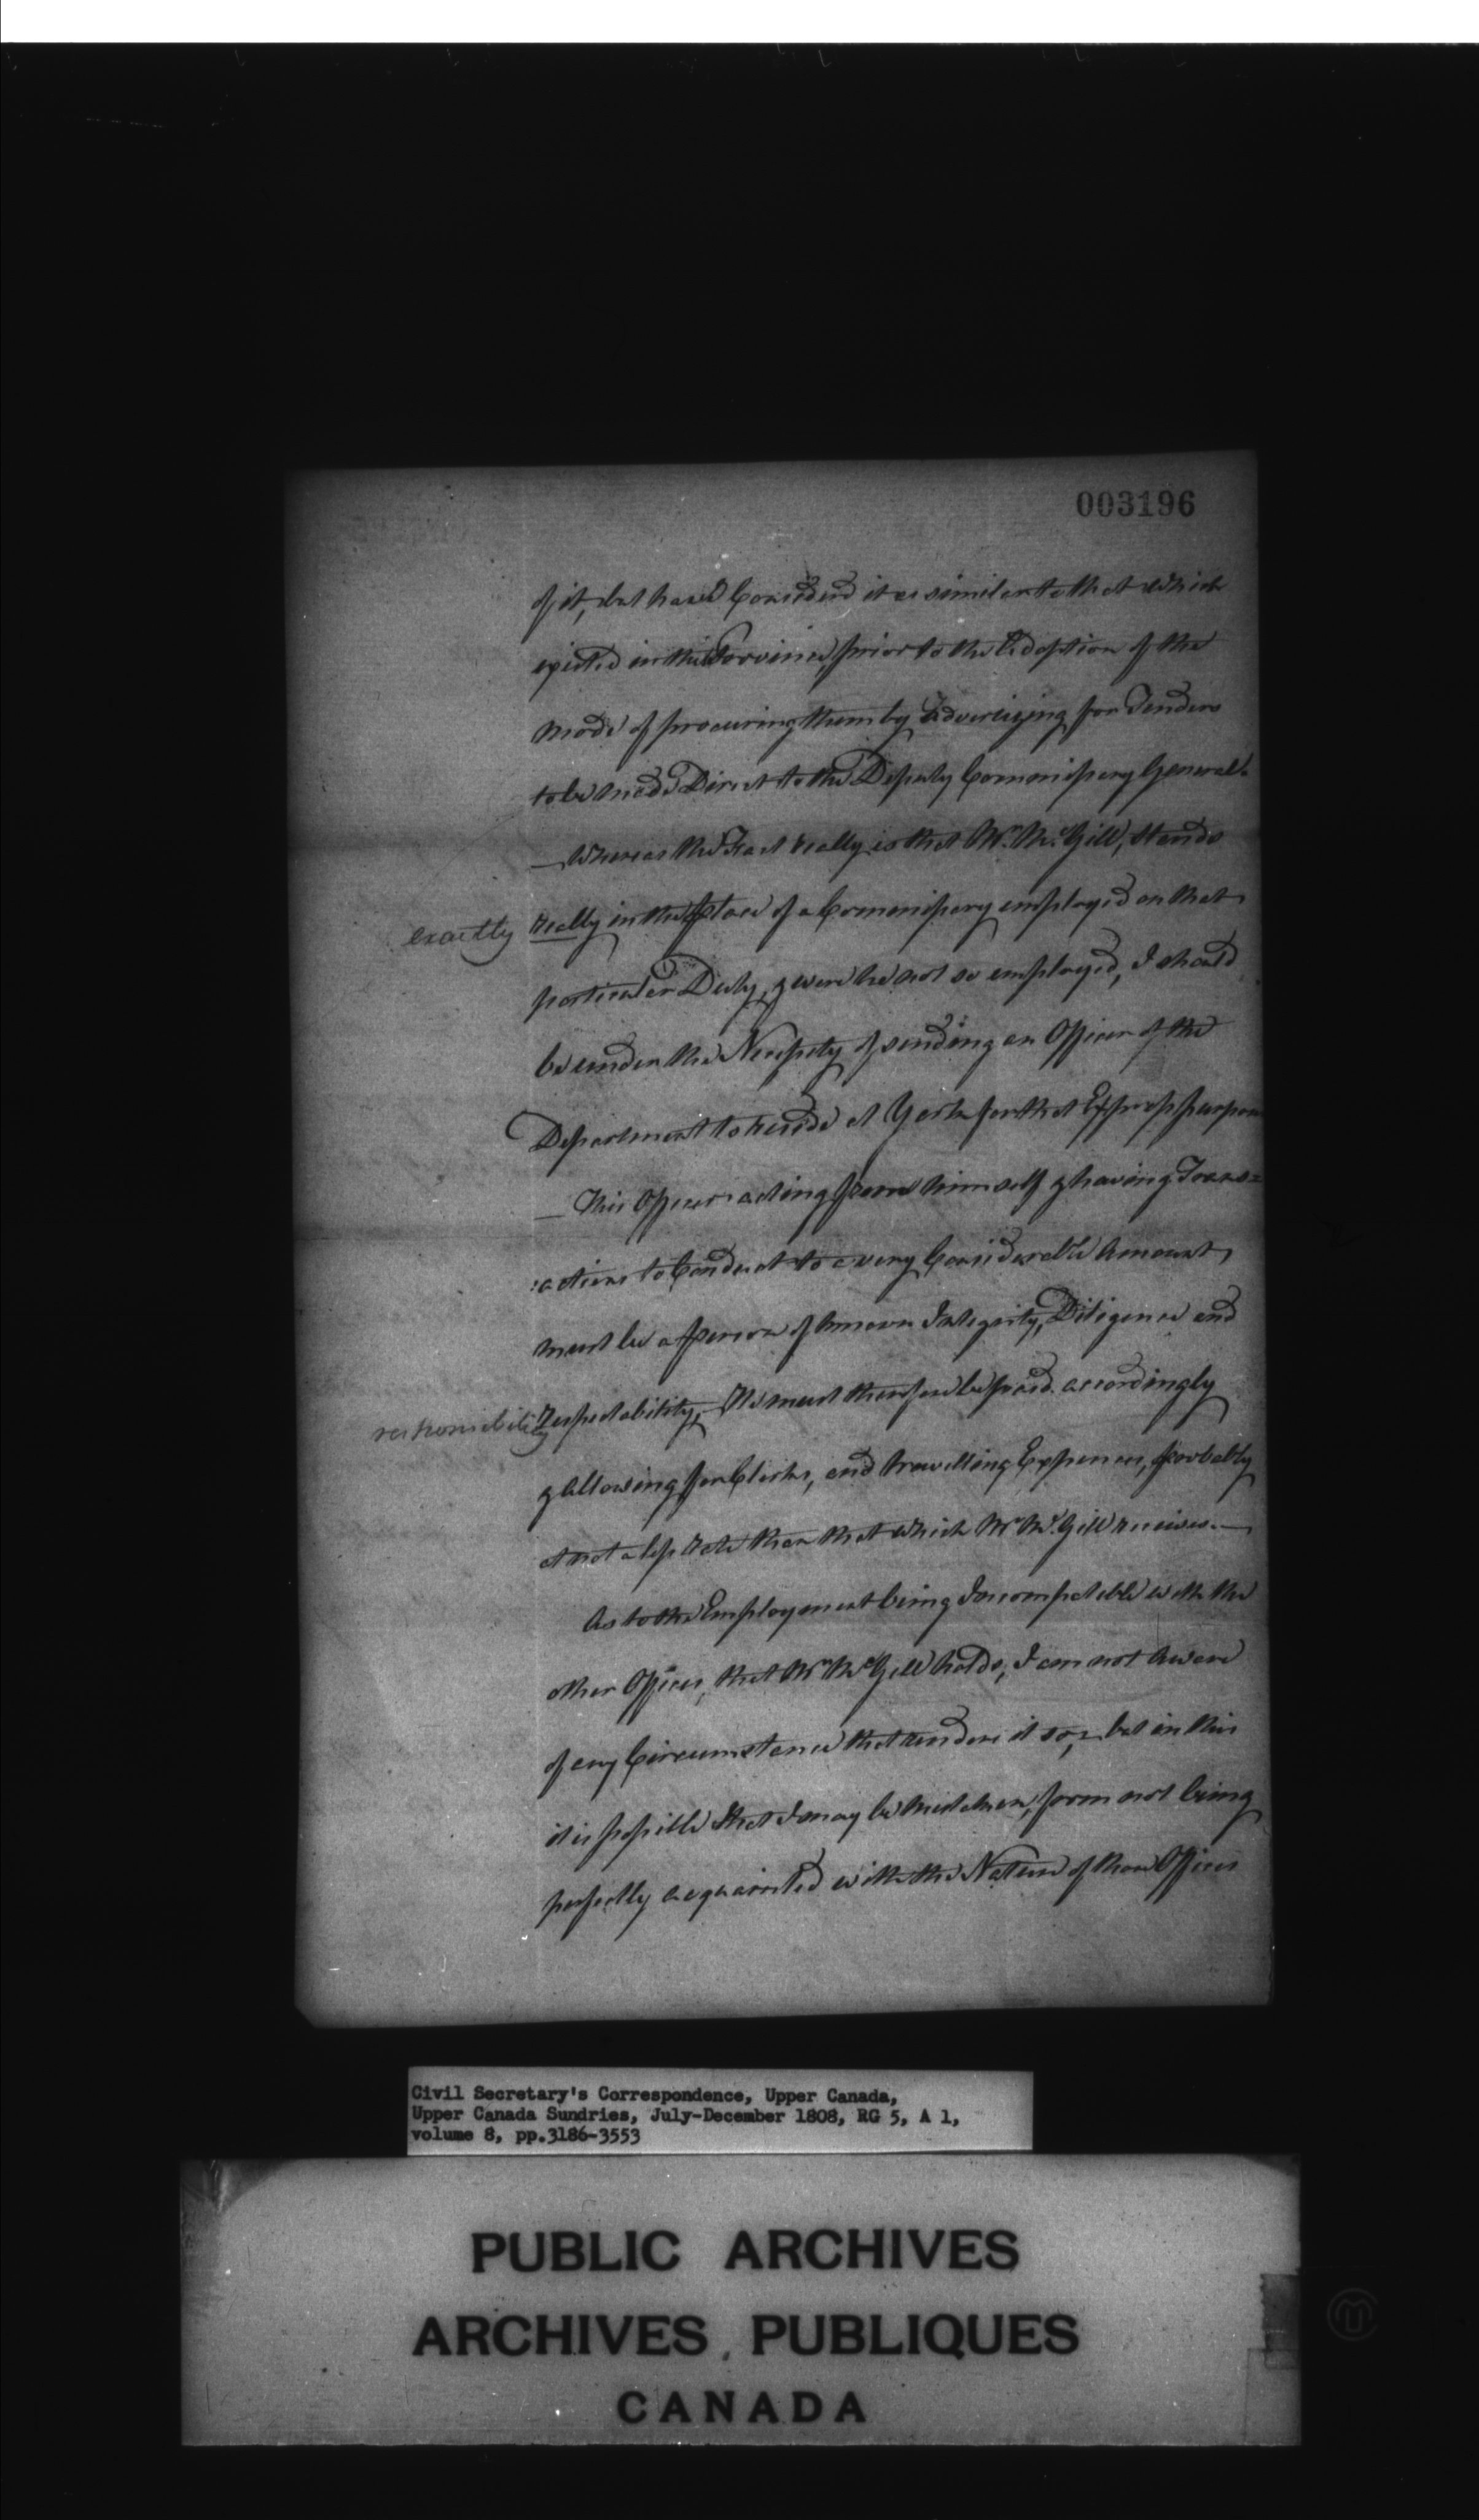 003196
of it, but have Considered it as similar to that which
existed in this Province, prior to the Adoption of the
mode of procuring them by Advertizing for Tenders
to be made Direct to the Deputy Commissary General.
— Whereas the Fact really is that Mr. McGill, stands
exactly really in the place of a Commissary employed on that
particular Duty, & were he not so employed, I should
be under the Necessity of sending an Officer of the
Department to reside at York for that Express purpose
— This Officer acting from himself & having Trans=
:actions to Conduct to a very Considerable Amount,
must be a person of known Integrity, Diligence and
responsibility respectability, He must therefore be paid accordingly
& allowing for Clerks, and travelling Expences, probably
at not a less rate than that which Mr. McGill receives. —
As to the Employment being Incompatible with the
other Offices, that Mr. McGill holds, I am not Aware
of any Circumstance that renders it so, — but in this
it is possible that I may be mistaken, from not being
perfectly acquainted with the Nature of those Offices
Civil Secretary's Correspondence, Upper Canada,
Upper Canada Sundries, July-December 1808, RG 5, A 1,
volume 8, pp.3186-3553
PUBLIC ARCHIVES
ARCHIVES PUBLIQUES
CANADA